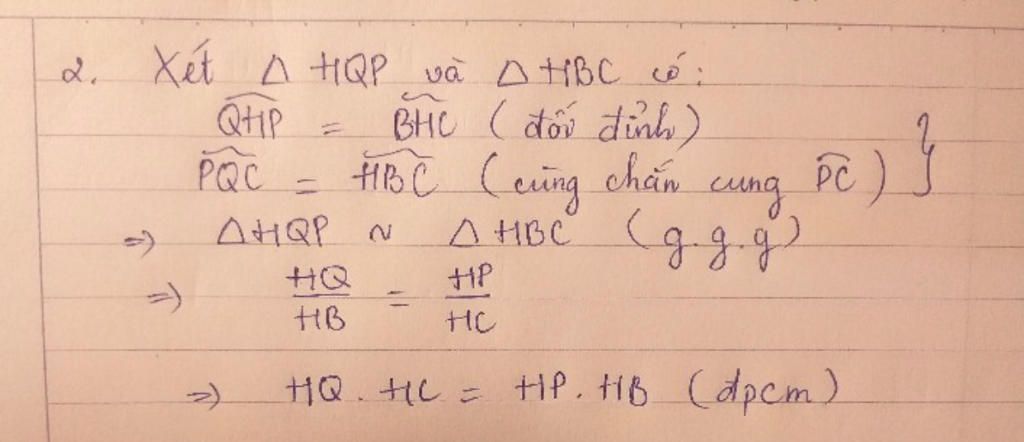 2. Xét △ HQP và △ HBC có:
QHP = BHC (đối đỉnh)
PQC = HBC (cùng chắn cung PC) }
=> △HQP ~ △HBC (g.g.g)
=> HQ/HB = HP/HC
=> HQ . HC = HP . HB (đpcm)